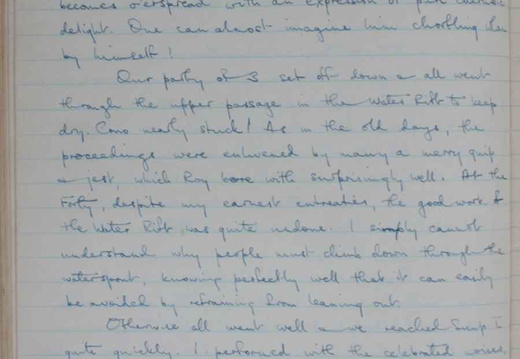 becomes o'erspread with an expression of pure
delight. One can almost imagine him chortling
by himself!
Our party of 3 set off down & all went
through the upper passage in the Water Rift to keep
dry. Cono nearly stuck! As in the old days, the
proceedings were enlivened by many a merry quip
& jest, which Roy bore with surprisingly well. At the
Forty, despite my earnest entreaties, the good work of
the Water Rift was quite undone. I simply cannot
understand why people must climb down through the
waterspout, knowing perfectly well that it can easily
be avoided by refraining from leaning out.
Otherwise all went well & we reached Sump I
quite quickly. I performed with the celebrated